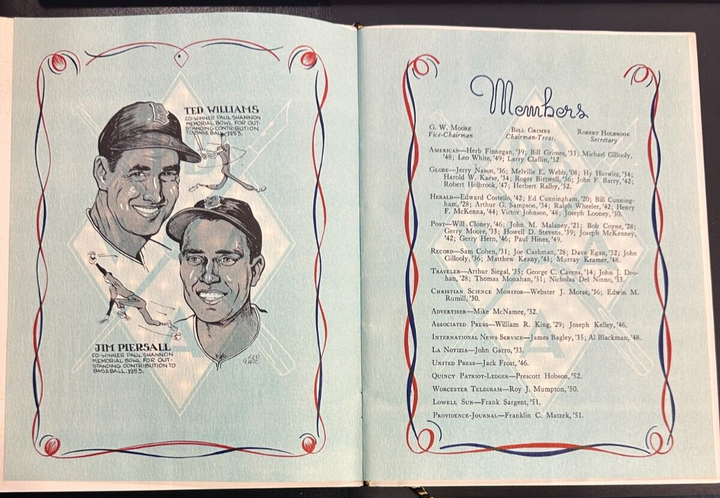 TED WILLIAMS
CO-WINNER PAUL SHANNON
MEMORIAL BOWL FOR OUT-
STANDING CONTRIBUTION
TO BASEBALL, 1953.
JIM PIERSALL
CO-WINNER PAUL SHANNON
MEMORIAL BOWL FOR OUT-
STANDING CONTRIBUTION TO
BASEBALL, 1953.
Members
G. W. Moore
Vice-Chairman
Bill Grimes
Chairman-Treas.
Robert Holbrook
Secretary
American—Herb Finnegan, '39; Bill Grimes, '31; Michael Gillooly,
'48; Leo White, '49; Larry Claflin, '52.
Globe—Jerry Nason, '36; Melville E. Webb, '08; Hy Hurwitz, '34;
Harold W. Kaese, '34; Roger Birtwell, '36; John F. Barry, '42;
Robert Holbrook, '47; Herbert Ralby, '52.
Herald—Edward Costello, '42; Ed Cunningham, '20; Bill Cunning-
ham, '28; Arthur G. Sampson, '34; Ralph Wheeler, '42; Henry
F. McKenna, '44; Victor Johnson, '48; Joseph Looney, '50.
Post—Will Cloney, '46; John M. Malaney, '21; Bob Coyne, '28;
Gerry Moore, '33; Howell D. Stevens, '39; Joseph McKenney,
'42; Gerry Hern, '46; Paul Hines, '49.
Record—Sam Cohen, '31; Joe Cashman, '28; Dave Egan, '32; John
Gillooly, '36; Matthew Keany, '41; Murray Kramer, '48.
Traveler—Arthur Siegal, '35; George C. Carens, '14; John J. Dro-
han, '28; Thomas Monahan, '51; Nicholas Del Ninno, '53.
Christian Science Monitor—Webster J. Morse, '36; Edwin M.
Rumill, '30.
Advertiser—Mike McNamee, '32.
Associated Press—William R. King, '29; Joseph Kelley, '46.
International News Service—James Bagley, '35; Al Blackman, '48.
La Notizia—John Garro, '33.
United Press—Jack Frost, '46.
Quincy Patriot-Ledger—Prescott Hobson, '52.
Worcester Telegram—Roy J. Mumpton, '50.
Lowell Sun—Frank Sargent, '51.
Providence-Journal—Franklin C. Matzek, '51.